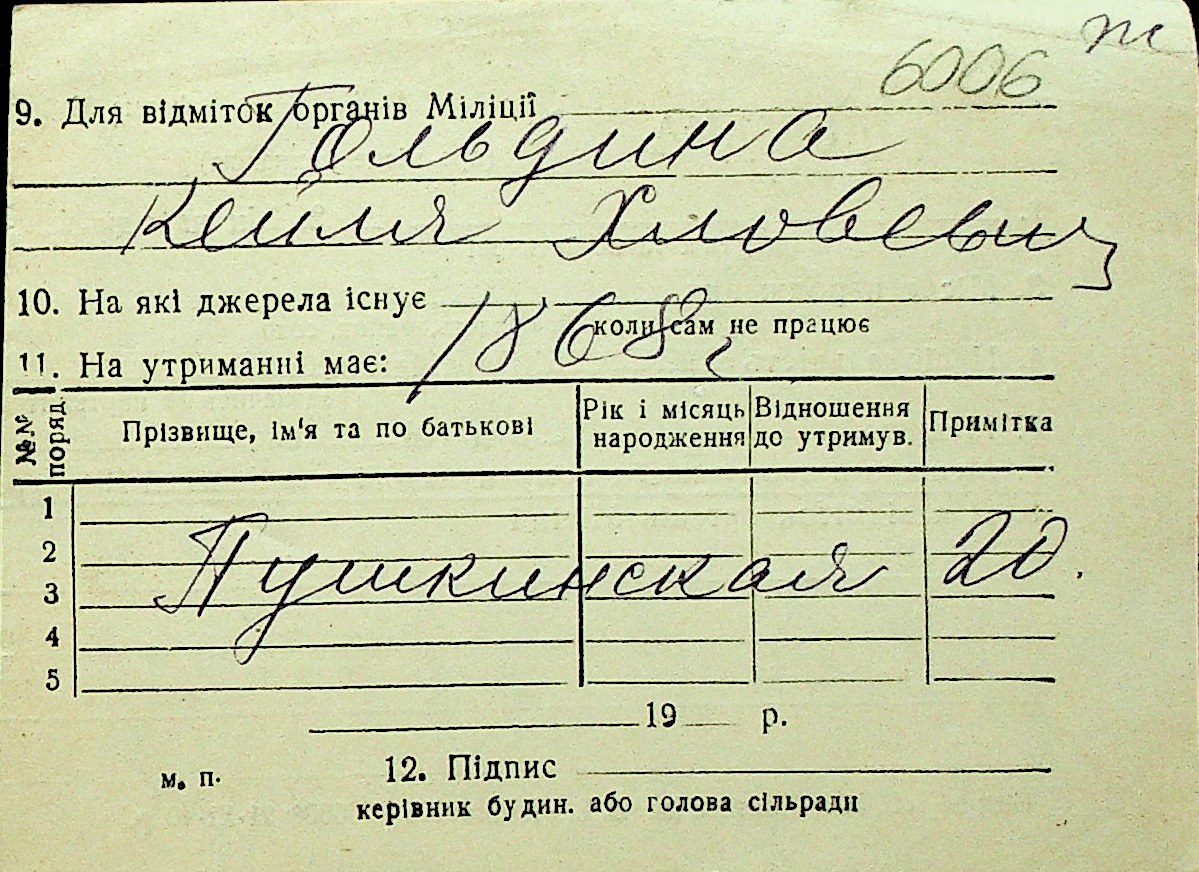 6006 т
9. Для відміток органів Міліції
Гольдина
Кейля
10. На які джерела існує
коли сам не працює
1868
11. На утриманні має:
№№ поряд. Прізвище, ім'я та по батькові Рік і місяць народження Відношення до утримув. Примітка
1
2
Пушкинская 20.
3
4
5
19 р.
м. п. 12. Підпис
керівник будин. або голова сільради